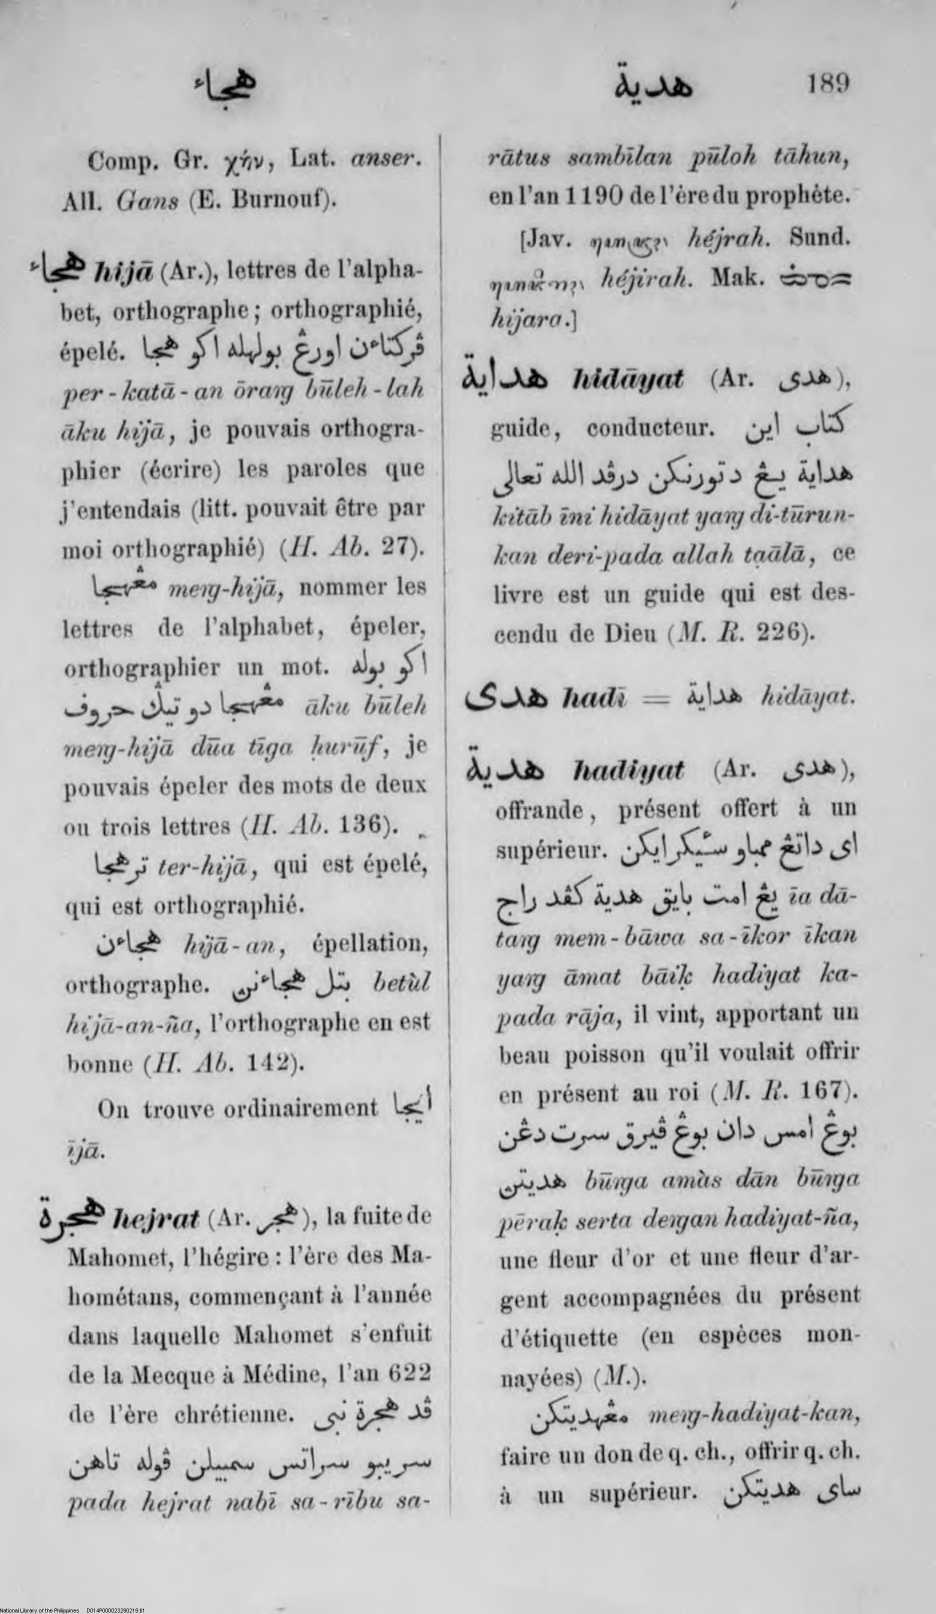 هجاء
هدية
189
Comp. Gr. χήν, Lat. anser.
All. Gans (E. Burnouf).
هجاء hijā (Ar.), lettres de l'alpha-
bet, orthographe; orthographié,
épelé. ڤركتاءن اورڠ بولهله اكو هجا
per-katā-an ōraṇg būleh-lah
āku hijā, je pouvais orthogra-
phier (écrire) les paroles que
j'entendais (litt. pouvait être par
moi orthographié) (H. Ab. 27).
مڠهجا meṇg-hijā, nommer les
lettres de l'alphabet, épeler,
orthographier un mot. اكو بوله
مڠهجا دو تيݢ حروف āku būleh
meṇg-hijā dūa tīga ḥurūf, je
pouvais épeler des mots de deux
ou trois lettres (H. Ab. 136).
ترهجا ter-hijā, qui est épelé,
qui est orthographié.
هجاءن hijā-an, épellation,
orthographe. بتل هجاءنن betùl
hijā-an-ña, l'orthographe en est
bonne (H. Ab. 142).
On trouve ordinairement أيجا
ījā.
هجرة hejrat (Ar. هجر), la fuite de
Mahomet, l'hégire : l'ère des Ma-
hométans, commençant à l'année
dans laquelle Mahomet s'enfuit
de la Mecque à Médine, l'an 622
de l'ère chrétienne. ڤد هجرة نبى
سريبو سراتس سمبيلن ڤوله تاهن
pada hejrat nabī sa-rību sa-
rātus sambīlan pūloh tāhun,
en l'an 1190 de l'ère du prophète.
[Jav. héjrah. Sund.
héjirah. Mak.
hijara.]
هداية hidāyat (Ar. هدى),
guide, conducteur. كتاب اين
هداية يڠ دتورنكن درڤد الله تعالى
kitāb īni hidāyat yaṇg di-tūrun-
kan deri-pada allah taālā, ce
livre est un guide qui est des-
cendu de Dieu (M. R. 226).
هدى hadī = هداية hidāyat.
هدية hadiyat (Ar. هدى),
offrande, présent offert à un
supérieur. اى داتڠ ممباو سئيكر ايكن
يڠ امت بايق هدية كڤد راج īa dā-
taṇg mem-bāwa sa-īkor īkan
yaṇg āmat bāiḳ hadiyat ka-
pada rāja, il vint, apportant un
beau poisson qu'il voulait offrir
en présent au roi (M. R. 167).
بوڠ امس دان بوڠ ڤيرق سرت دڠن
هديتن būṇga amàs dān būṇga
pēraḳ serta deṇgan hadiyat-ña,
une fleur d'or et une fleur d'ar-
gent accompagnées du présent
d'étiquette (en espèces mon-
nayées) (M.).
مڠهديتكن meṇg-hadiyat-kan,
faire un don de q. ch., offrir q. ch.
à un supérieur. ساى هديتكن
National Library of the Philippines